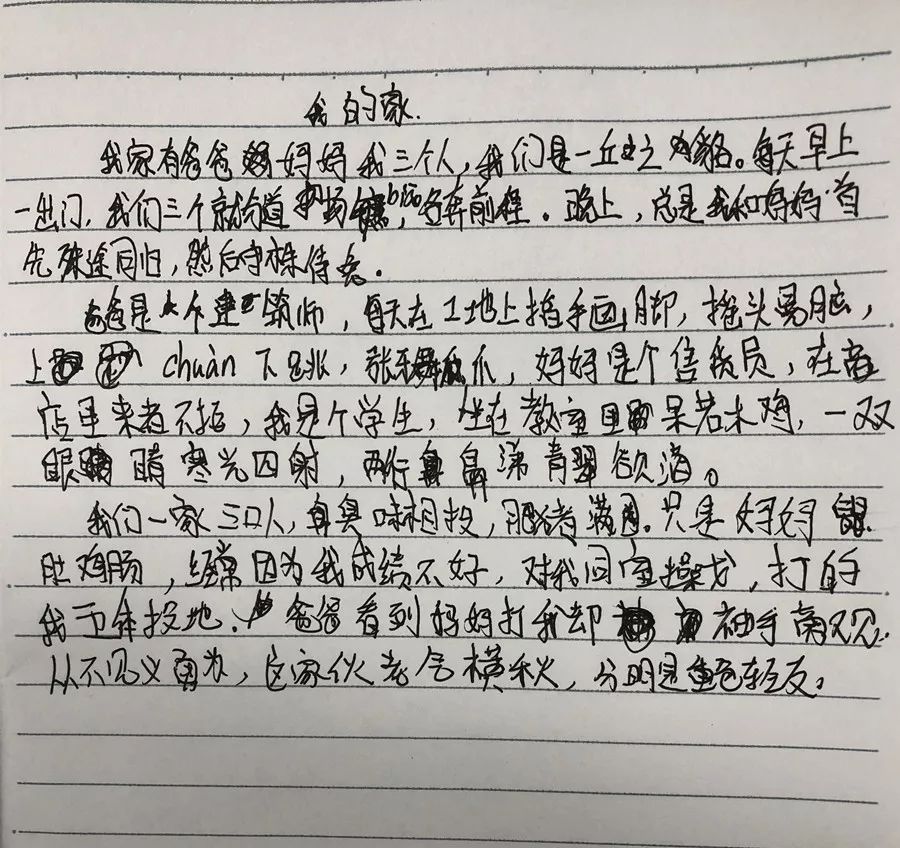 我的家.
我家有爸爸妈妈我三个人，我们是一丘之貉。每天早上
一出门，我们三个就分道扬镳biāo，各奔前程．晚上，总是我和妈妈首
先殊途同归，然后守株待兔．
爸爸是个建筑师，每天在工地上指手画脚，摇头晃脑，
上chuàn下跳，张牙舞爪，妈妈是个售货员，在商
店里来者不拒，我是个学生，坐在教室里呆若木鸡，一双
眼睛寒光四射，两行鼻涕青翠欲滴。
我们一家三口人，臭味相投，肥猪满圈．只是妈妈鼠
肚鸡肠，经常因为我成绩不好，对我同室操戈，打的
我五体投地．爸爸看到妈妈打我却袖手旁观．
从不见义勇为，这家伙老气横秋，分明是重色轻友。